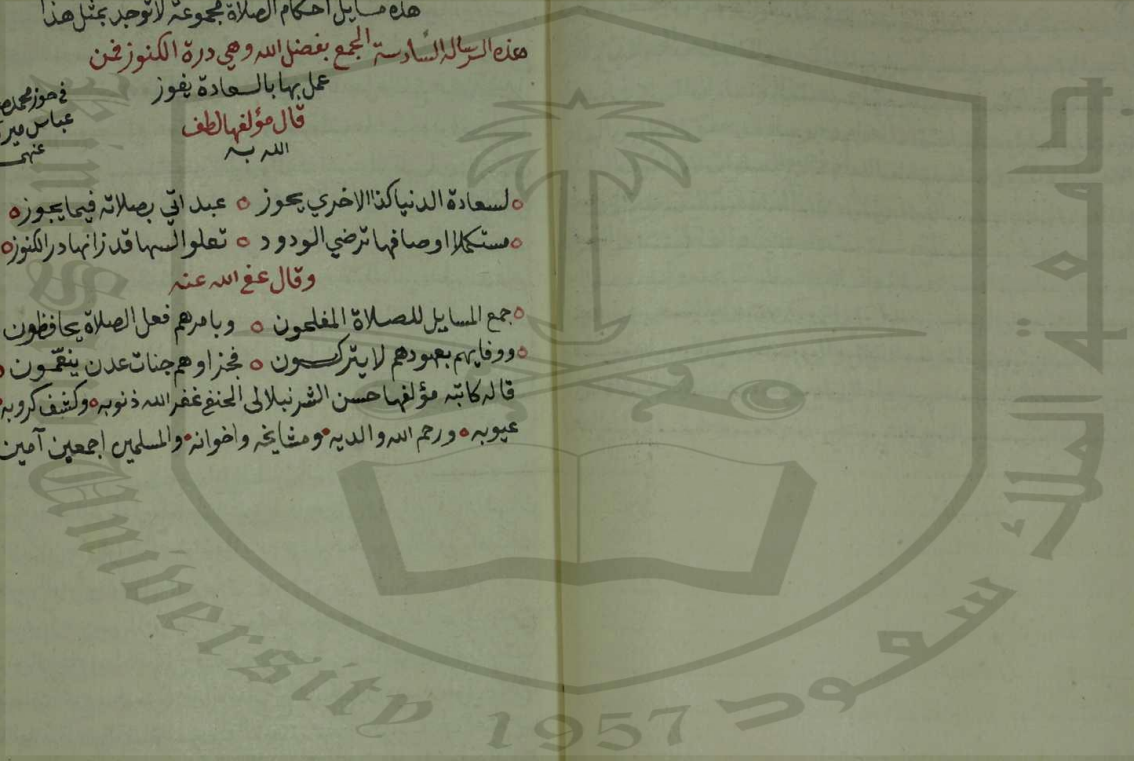 هذه مسايل احكام الصلاة مجموعة لا توجد بمثل هذا
هذه الرسالة السادسة الجمع بفضل الله وهي درة الكنوز فمن
عمل بها بالسعادة يفوز
قال مؤلفها لطف
الله به
في حوز محمد
عباس مير
عنهم
لسعادة الدنيا كذا الاخري يحوز ٥ عبد اتي بصلاته فيما يجوز ٥
مستكملا اوصافها ترضي الودود ٥ تعلو السها قد زانها در الكنوز ٥
وقال عفي الله عنه
جمع المسايل للصلاة المفلحون ٥ وبامرهم فعل الصلاة يحافظون
ووفايهم بعهودهم لا يتركون ٥ فجزاوهم جنات عدن ينعمون
قاله كاتبه مؤلفها حسن الشرنبلالي الحنفي غفر الله ذنوبه وكشف كروبه
عيوبه ورحم الله والديه ومشايخه واخوانه والمسلمين اجمعين آمين
جامعة الملك سعود
King Saud University 1957